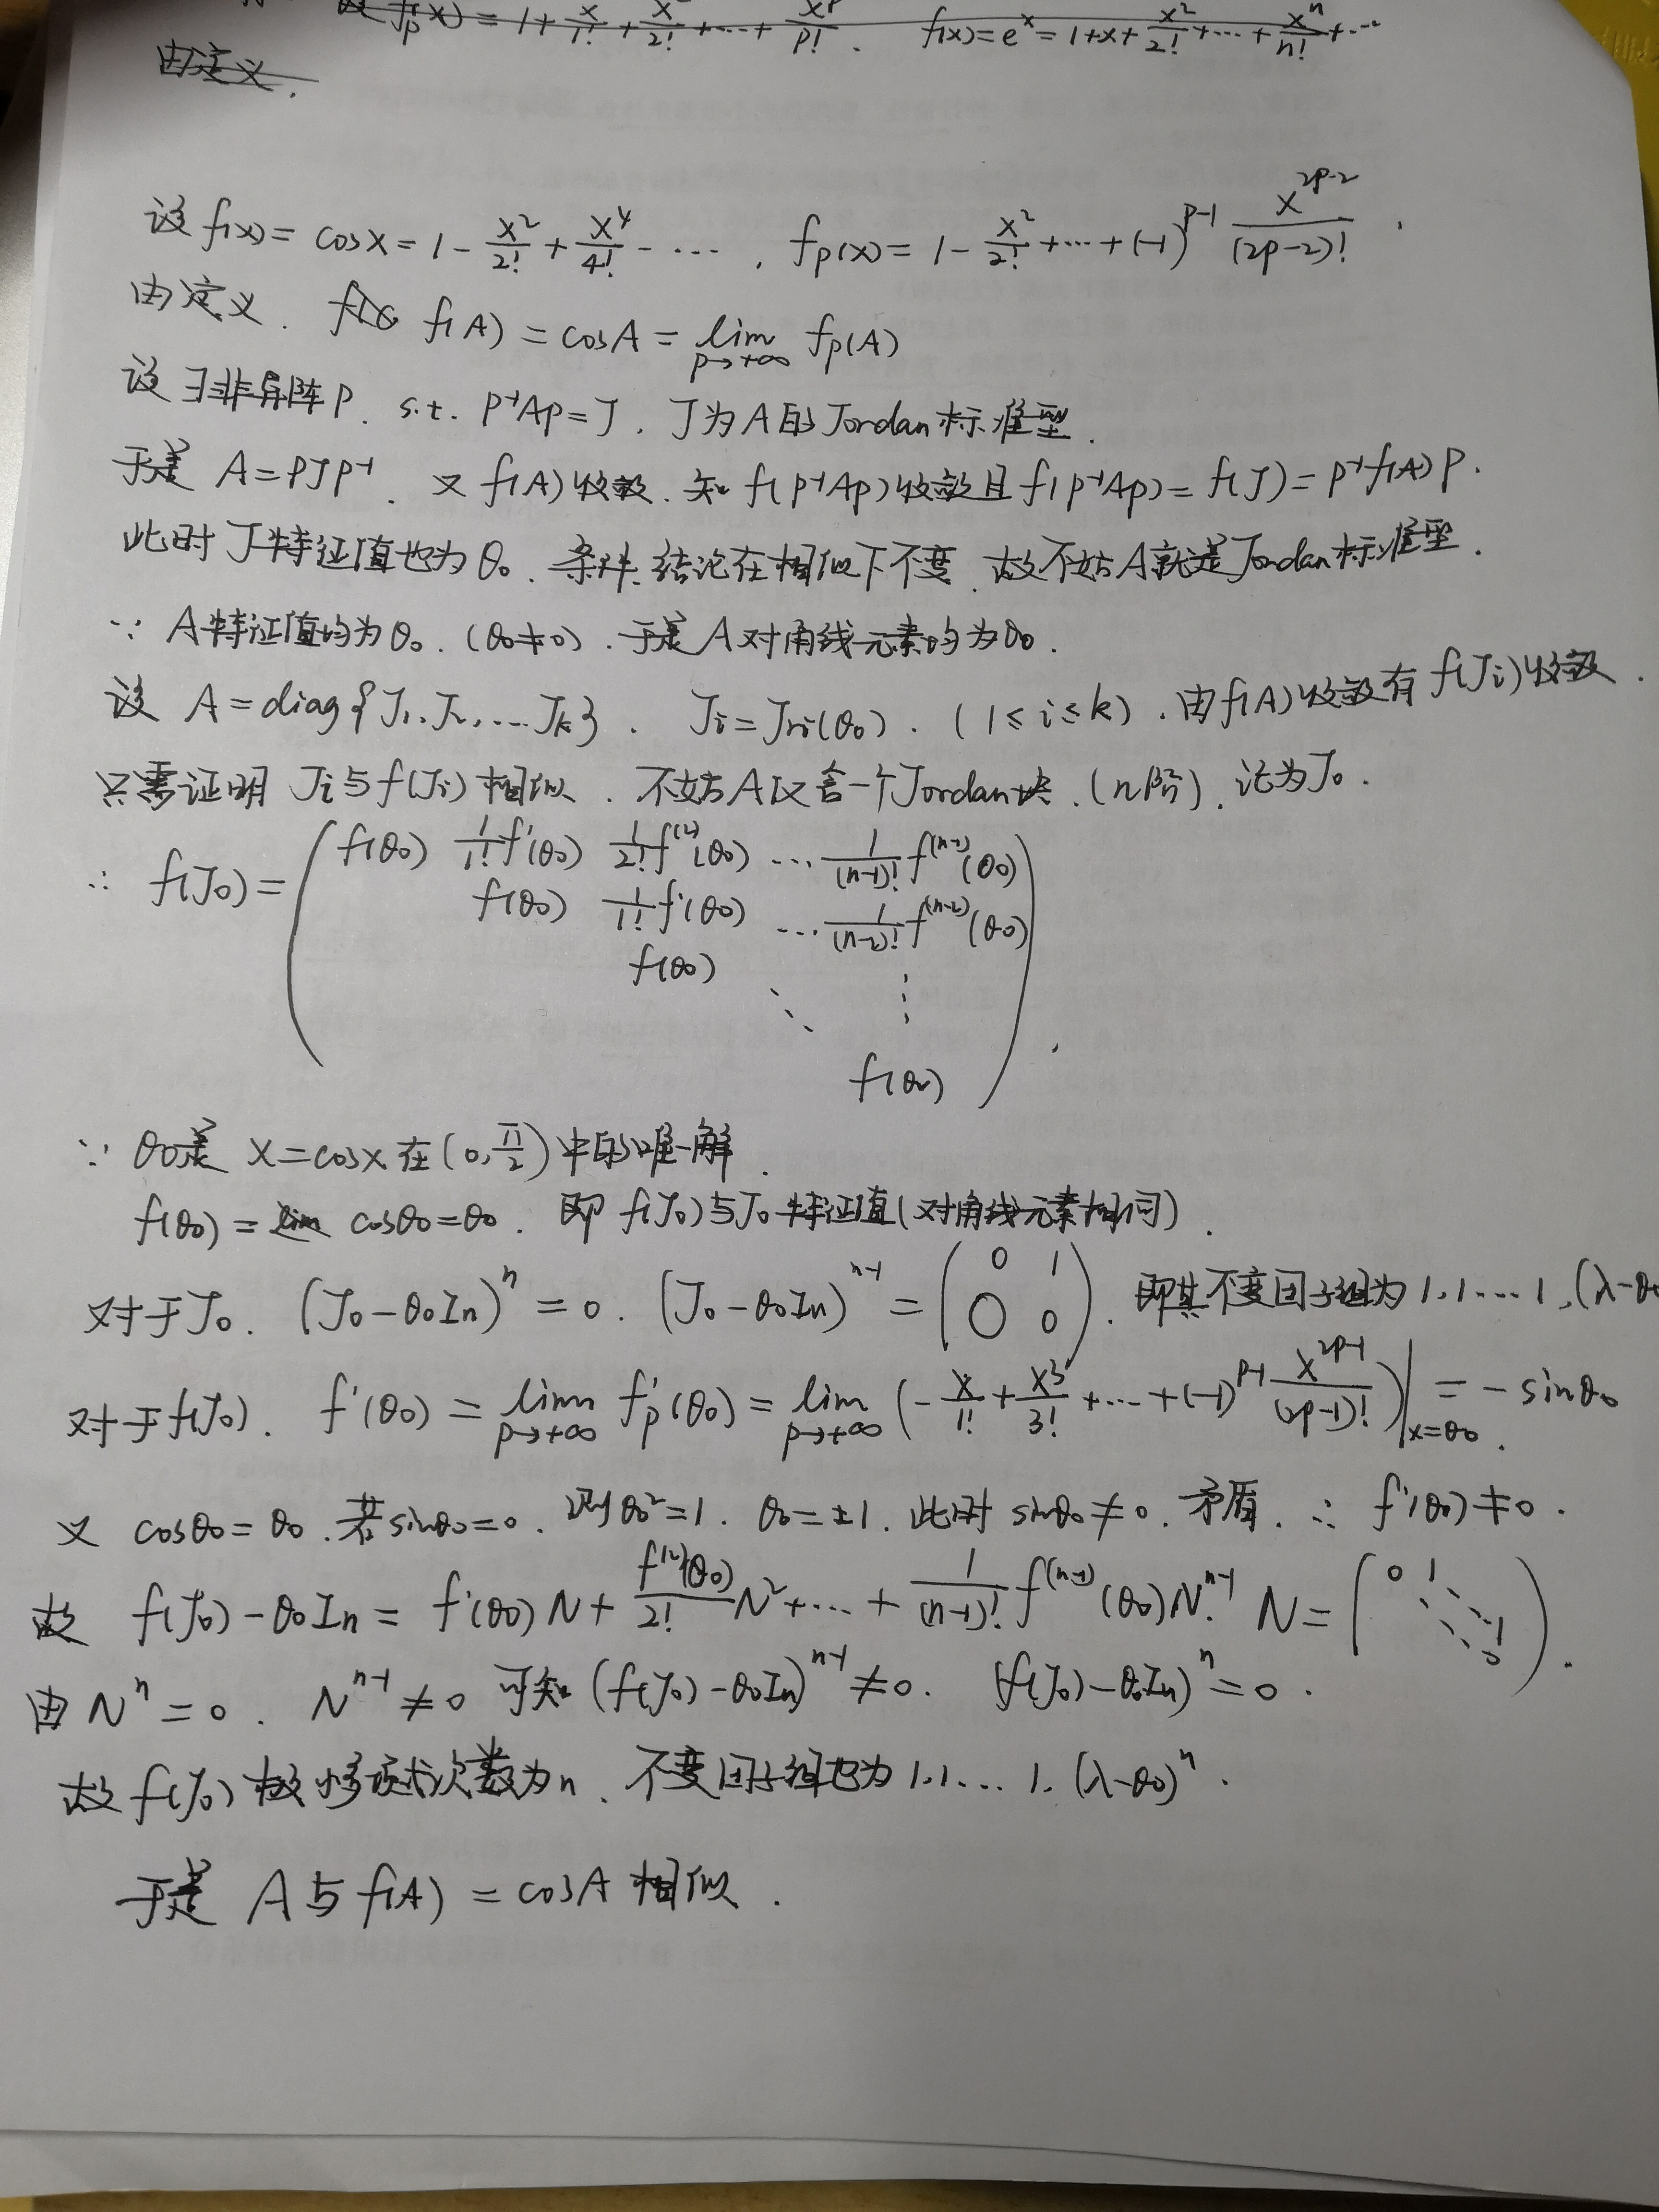 f_p(x) = 1 + x/1! + x²/2! + ⋯ + x^p/p! . f(x) = e^x = 1 + x + x²/2! + ⋯ + x^n/n! + ⋯
由定义.
设 f(x) = cosx = 1 - x²/2! + x⁴/4! - ⋯ , f_p(x) = 1 - x²/2! + ⋯ + (-1)^(p-1) x^(2p-2)/(2p-2)! .
由定义. f(A) = cosA = lim_{p→+∞} f_p(A)
设∃非异阵P. s.t. P⁻¹AP = J. J为A的Jordan标准型.
于是 A = PJP⁻¹. 又 f(A)收敛. 知 f(P⁻¹AP)收敛且 f(P⁻¹AP) = f(J) = P⁻¹f(A)P.
此时J特征值也为θ₀. 条件. 结论在相似下不变. 故不妨A就是Jordan标准型.
∵ A特征值均为θ₀. (θ₀≠0). 于是A对角线元素均为θ₀.
设 A = diag{J₁. J₂, ⋯. J_k}. J_i = J_{ri}(θ₀). (1 ≤ i ≤ k). 由f(A)收敛有 f(J_i)收敛.
只需证明 J_i与f(J_i)相似. 不妨A仅含一个Jordan块. (n阶). 记为J₀.
∴ f(J₀) = ( f(θ₀) 1/1! f'(θ₀) 1/2! f^(2)(θ₀) ⋯ 1/(n-1)! f^(n-1)(θ₀)
f(θ₀) 1/1! f'(θ₀) ⋯ 1/(n-2)! f^(n-2)(θ₀)
f(θ₀)
⋱ ⋮
f(θ₀) ) .
∵ θ₀是 x = cosx 在 (0, π/2) 中的唯一解.
f(θ₀) = cosθ₀ = θ₀. 即 f(J₀)与J₀特征值(对角线元素相同).
对于J₀. (J₀ - θ₀I_n)^n = 0. (J₀ - θ₀I_n)^(n-1) = ( 0 1 O 0 ). 即其不变因子组为 1, 1. ⋯ 1, (λ-θ₀
对于f(J₀). f'(θ₀) = lim_{p→+∞} f'_p(θ₀) = lim_{p→+∞} (- x/1! + x³/3! + ⋯ + (-1)^(p-1) x^(2p-1)/(2p-1)!)|_{x=θ₀} = - sinθ₀.
又 cosθ₀ = θ₀. 若sinθ₀ = 0. 则θ₀² = 1. θ₀ = ±1. 此时 sinθ₀ ≠ 0. 矛盾. ∴ f'(θ₀) ≠ 0.
故 f(J₀) - θ₀I_n = f'(θ₀)N + f^(2)(θ₀)/2! N² + ⋯ + 1/(n-1)! f^(n-1)(θ₀)N^(n-1). N = ( 0 1 ⋱ ⋱ 1 0 ).
由 N^n = 0. N^(n-1) ≠ 0 可知 (f(J₀) - θ₀I_n)^(n-1) ≠ 0. (f(J₀) - θ₀I_n)^n = 0.
故 f(J₀) 极小多项式次数为n. 不变因子组也为 1. 1. ⋯ 1. (λ-θ₀)^n.
于是 A与f(A) = cosA 相似.